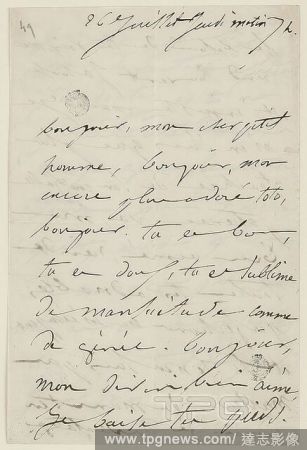 49
26 Juillet Jeudi matin 7 h.
bonjour, mon cher petit
homme, bonjour, mon
encore plus adoré toto,
bonjour. tu es bon,
tu es doux, tu es sublime
de mansuétude comme
de génie. bonjour,
mon divin bien aimé,
Je baise tes pieds.
TPG
www.tpgnews.com / 達志影像